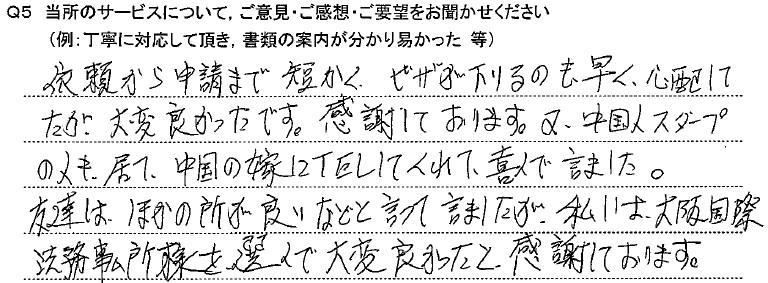 Q5 当所のサービスについて,ご意見・ご感想・ご要望をお聞かせください
(例:丁寧に対応して頂き,書類の案内が分かり易かった 等)
依頼から申請まで短かく、ビザが下りるのも早く、心配して
たが、大変良かったです。感謝しております。又、中国人スタープ
の人も居て、中国の嫁にTELしてくれて、喜んで ました。
友達は、ほかの所が良いなどと言って ましたが、私は、大阪国際
法務事ム所様を選んで大変良かったと、感謝しております。